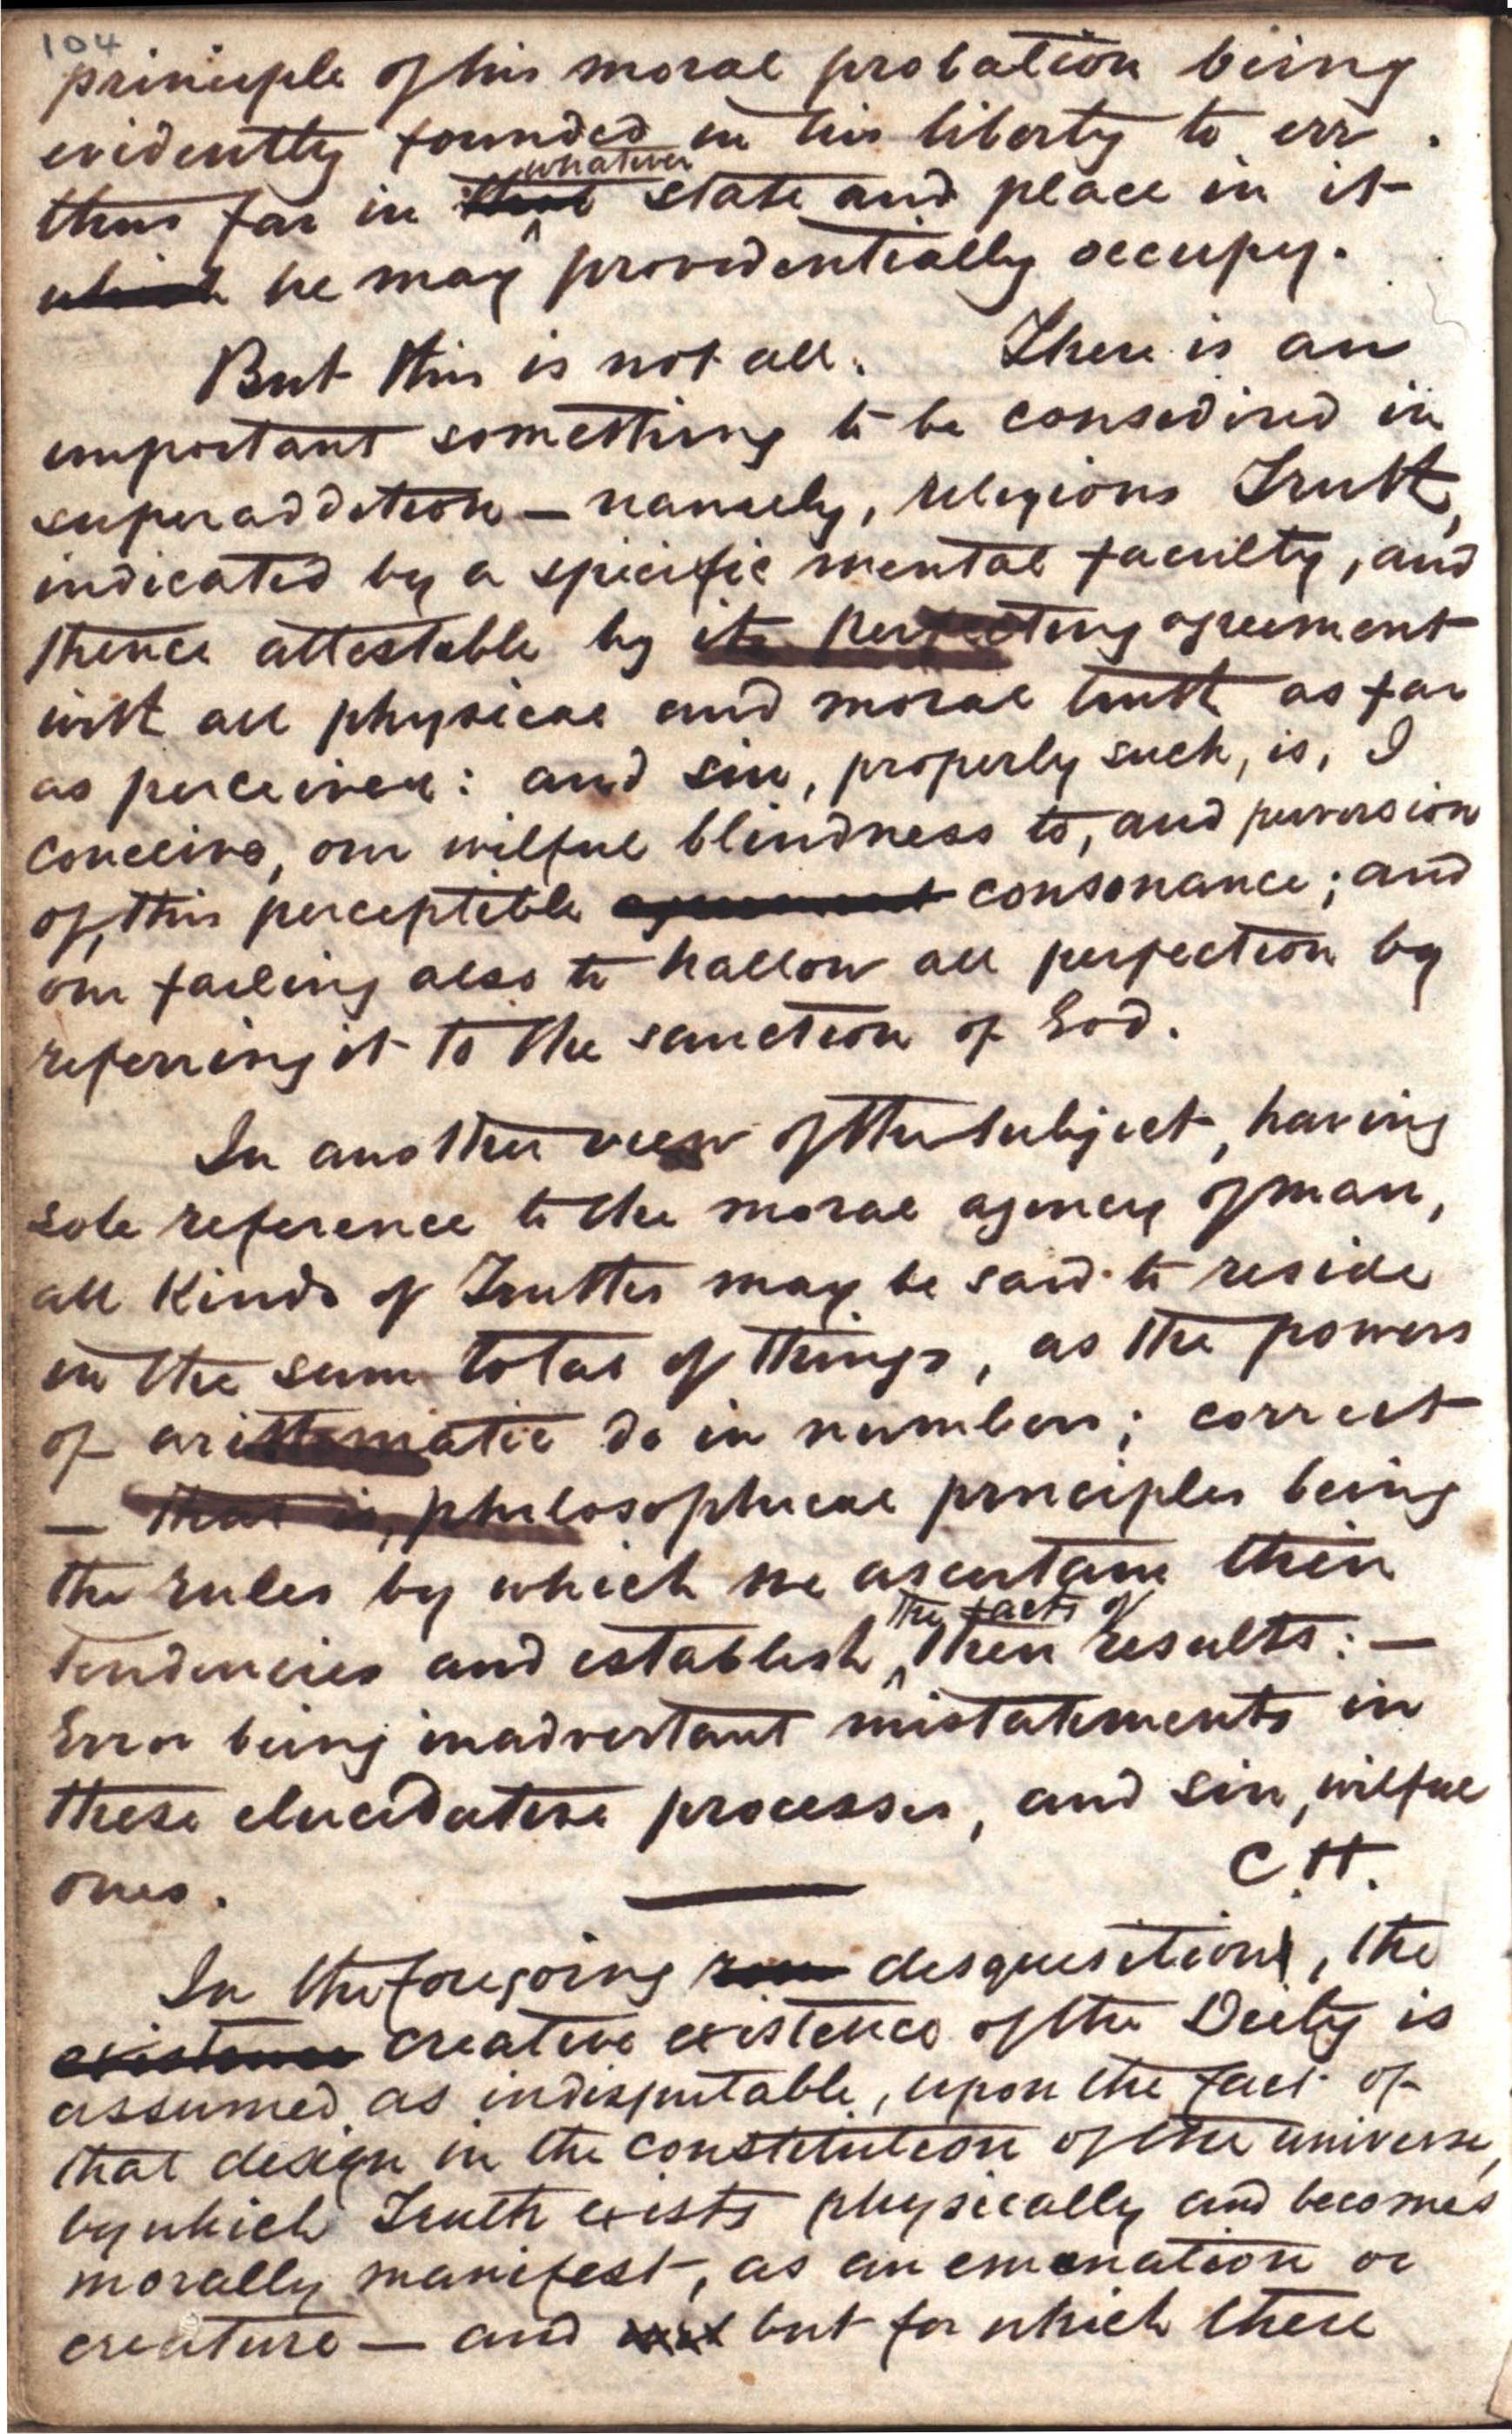 104
principle of his moral probation being
evidently founded in his liberty to err .
whatever
thus far in that state and place in it
which he may providentially occupy.
But this is not all. There is an
important something to be considired in
superaddition — namely, religious Truth,
indicated by a specific mental faculty, and
thence attestable by its perfecting agreement
with all physical and moral truth as far
as perceived: and sin, properly such, is, I
conceive, our wilful blindness to, and perversion
of, this perceptible agreement consonance; and
our failing also to hallow all perfection by
referring it to the sanction of God.
In another view of the subject, having
sole reference to the moral agency of man,
all kinds of Truths may be said to reside
in the sum total of things, as the powers
of arithmatic do in numbers; correct
— that is, philosophical principles being
the rules by which we ascertain their
the facts of
tendencies and establish their results: —
Error being inadvertant mistatements in
these elucidative processes, and sin, wilful
ones. C.H.
In the foregoing disquisition, the
existence creative existence of the Deity is
assumed as indisputable, upon the fact of
that design in the constitution of the universe,
by which Truth exists physically and becomes
morally manifest, as an emanation or
creature — and but for which there